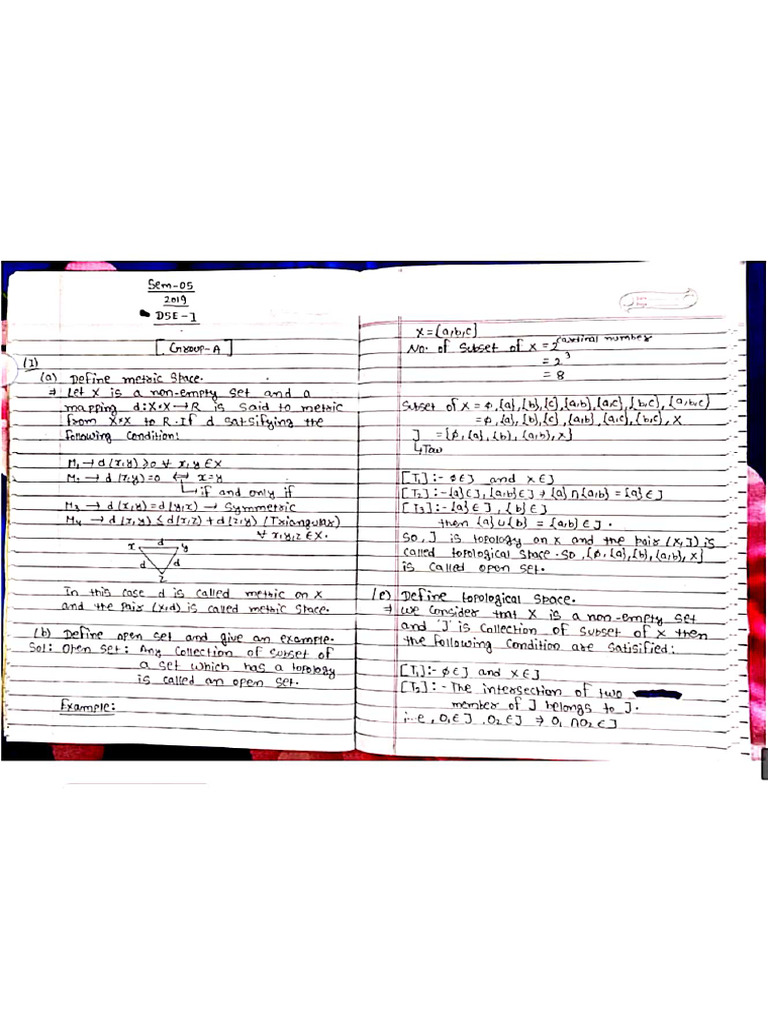 Sem-05
2019
DSE-I
[Group-A]
(1)
(a) Define metric space.
⇒ Let X is a non-empty set and a
mapping d:X×X→R is said to metric
from X×X to R. If d satsifying the
following Condition:
M₁ → d(x,y) ≥0 ∀ x,y ∈ X
M₂ → d(x,y)=0 ⟺ x=y
↳ if and only if
M₃ → d(x,y)=d(y,x) → Symmetric
M₄ → d(x,y) ≤ d(x,z) + d(z,y) (Triangular)
∀ x,y,z ∈ X.
x d y
d d
z
In this case d is called metric on X
and the Pair (X,d) is called metric space.
(b) Define open set and give an example.
Sol: Open set: Any Collection of subset of
a set which has a topology
is called an open set.
Example:
X={a,b,c}
No. of Subset of X = 2^cardinal number
= 2³
= 8
Subset of X = ϕ, {a}, {b}, {c}, {a,b}, {a,c}, {b,c}, {a,b,c}
= ϕ, {a}, {b}, {c}, {a,b}, {a,c}, {b,c}, X
J = {ϕ, {a}, {b}, {a,b}, X}
↳Tau
[T₁]:- ϕ∈J and X∈J
[T₂]:- {a}∈J, {a,b}∈J → {a}∩{a,b} = {a}∈J
[T₃]:- {a}∈J, {b}∈J
then {a}∪{b} = {a,b}∈J.
So, J is topology on X and the Pair (X,J) is
called topological space. So, {ϕ, {a}, {b}, {a,b}, X}
is called open set.
(c) Define topological space.
⇒ We Consider that X is a non-empty set
and 'J' is Collection of subset of X then
the following Condition are satisified:
[T₁]:- ϕ∈J and X∈J
[T₂]:- The intersection of two
member of J belongs to J.
i.e, O₁∈J, O₂∈J ⇒ O₁∩O₂∈J